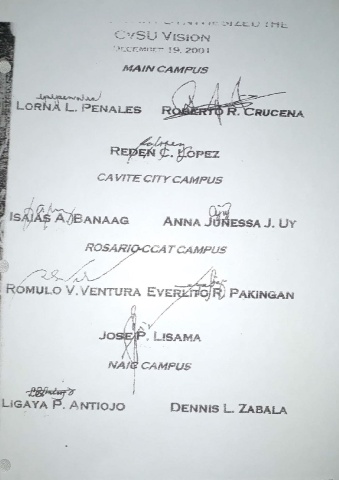 SYNTHESIZED THE
CvSU VISION
DECEMBER 19, 2001
MAIN CAMPUS
LORNA L. PENALES ROBERTO R. CRUCENA
REDEN C. LOPEZ
CAVITE CITY CAMPUS
ISAIAS A. BANAAG ANNA JUNESSA J. UY
ROSARIO-CCAT CAMPUS
ROMULO V. VENTURA EVERLITO R. PAKINGAN
JOSE P. LISAMA
NAIC CAMPUS
LIGAYA P. ANTIOJO DENNIS L. ZABALA